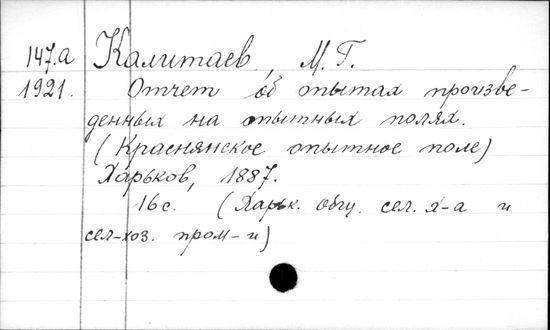 147.а Калитаев, М. Г.
1921. Отчет об опытах произве-
денных на опытных полях.
(Краснянское опытное поле)
Харьков, 1887.
16 с. (Харьк. общ. сел. х-а и
сел-хоз. пром-и)